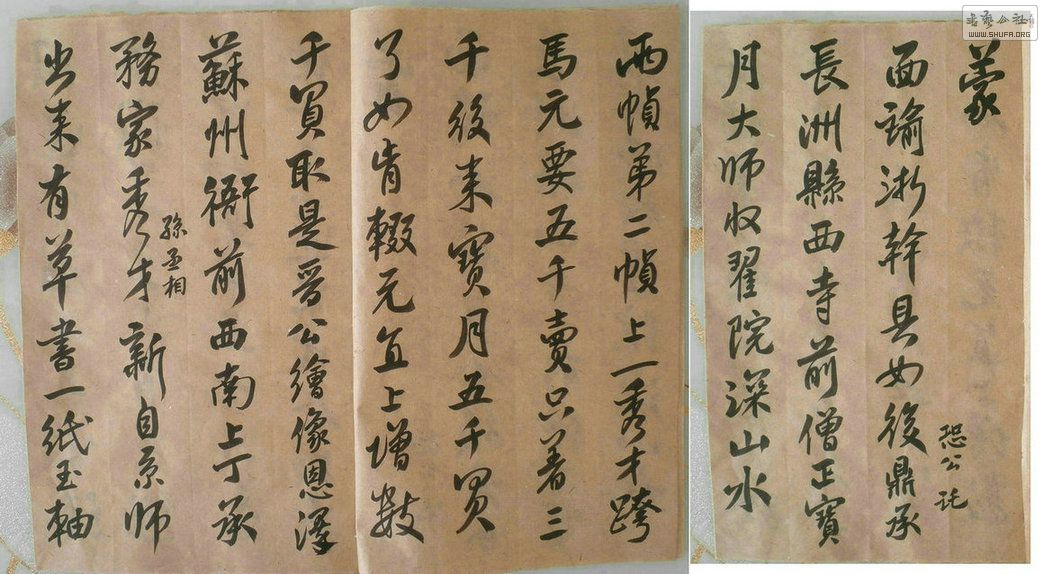 蒙
面諭浙幹具如後鼎承
恐公託
長洲縣西寺前僧正寶
月大師收翟院深山水
兩幀第二幀上一秀才跨
馬元要五千賣只著三
千後來寶月五千買
了如肯輟元直上增數
千買取是晉公繪像恩澤
蘇州衙前西南上丁承
務家秀才新自京師
孫丞相
出來有草書一紙玉軸
書藝公社
WWW.SHUFA.ORG